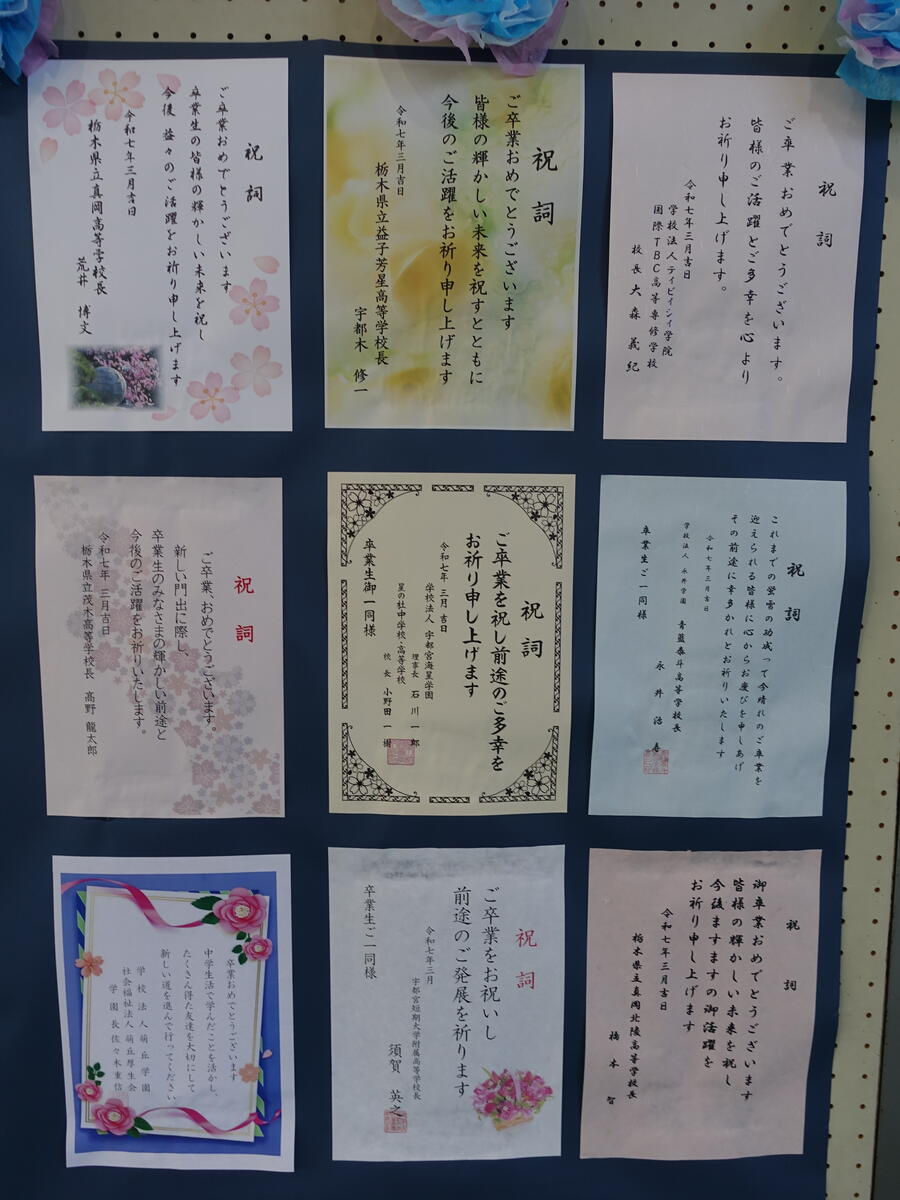 祝詞
ご卒業おめでとうございます。
皆様のご活躍とご多幸を心より
お祈り申し上げます。
令和七年三月吉日
学校法人テイビイシイ学院
国際TBC高等専修学校
校長 大森 義紀
祝詞
ご卒業おめでとうございます
皆様の輝かしい未来を祝すとともに
今後のご活躍をお祈り申し上げます
令和七年三月吉日
栃木県立益子芳星高等学校長
宇都木 修一
祝詞
ご卒業おめでとうございます
卒業生の皆様の輝かしい未来を祝し
今後 益々のご活躍をお祈り申し上げます
令和七年三月吉日
栃木県立真岡高等学校長
荒井 博文
祝詞
これまでの螢雪の功成って今晴れのご卒業を
迎えられる皆様に心からお慶びを申しあげ
その前途に幸多かれとお祈りいたします
令和七年三月吉日
学校法人 永井学園
青藍泰斗高等学校長
永井
卒業生ご一同様
祝詞
ご卒業を祝し前途のご多幸を
お祈り申し上げます
令和七年 三月 吉日
学校法人 宇都宮海星学園
理事長 石川 一郎
星の杜中学校・高等学校
校長 小野田 一樹
卒業生御一同様
祝詞
ご卒業、おめでとうございます。
新しい門出に際し、
卒業生のみなさまの輝かしい前途と
今後のご活躍をお祈りいたします。
令和七年 三月吉日
栃木県立茂木高等学校長 髙野 龍太郎
祝詞
御卒業おめでとうございます
皆様の輝かしい未来を祝し
今後ますますの御活躍を
お祈り申し上げます
令和七年三月吉日
栃木県立真岡北陵高等学校長
橋本 智
祝詞
ご卒業をお祝いし
前途のご発展を祈ります
令和七年三月
宇都宮短期大学附属高等学校長
須賀 英之
卒業生ご一同様
卒業おめでとうございます
中学生活で学んだことを活かし、
たくさん得た友達を大切にして
新しい道を進んで行ってください
学校法人萌丘学園
社会福祉法人萌丘厚生会
学園長 佐々木重信